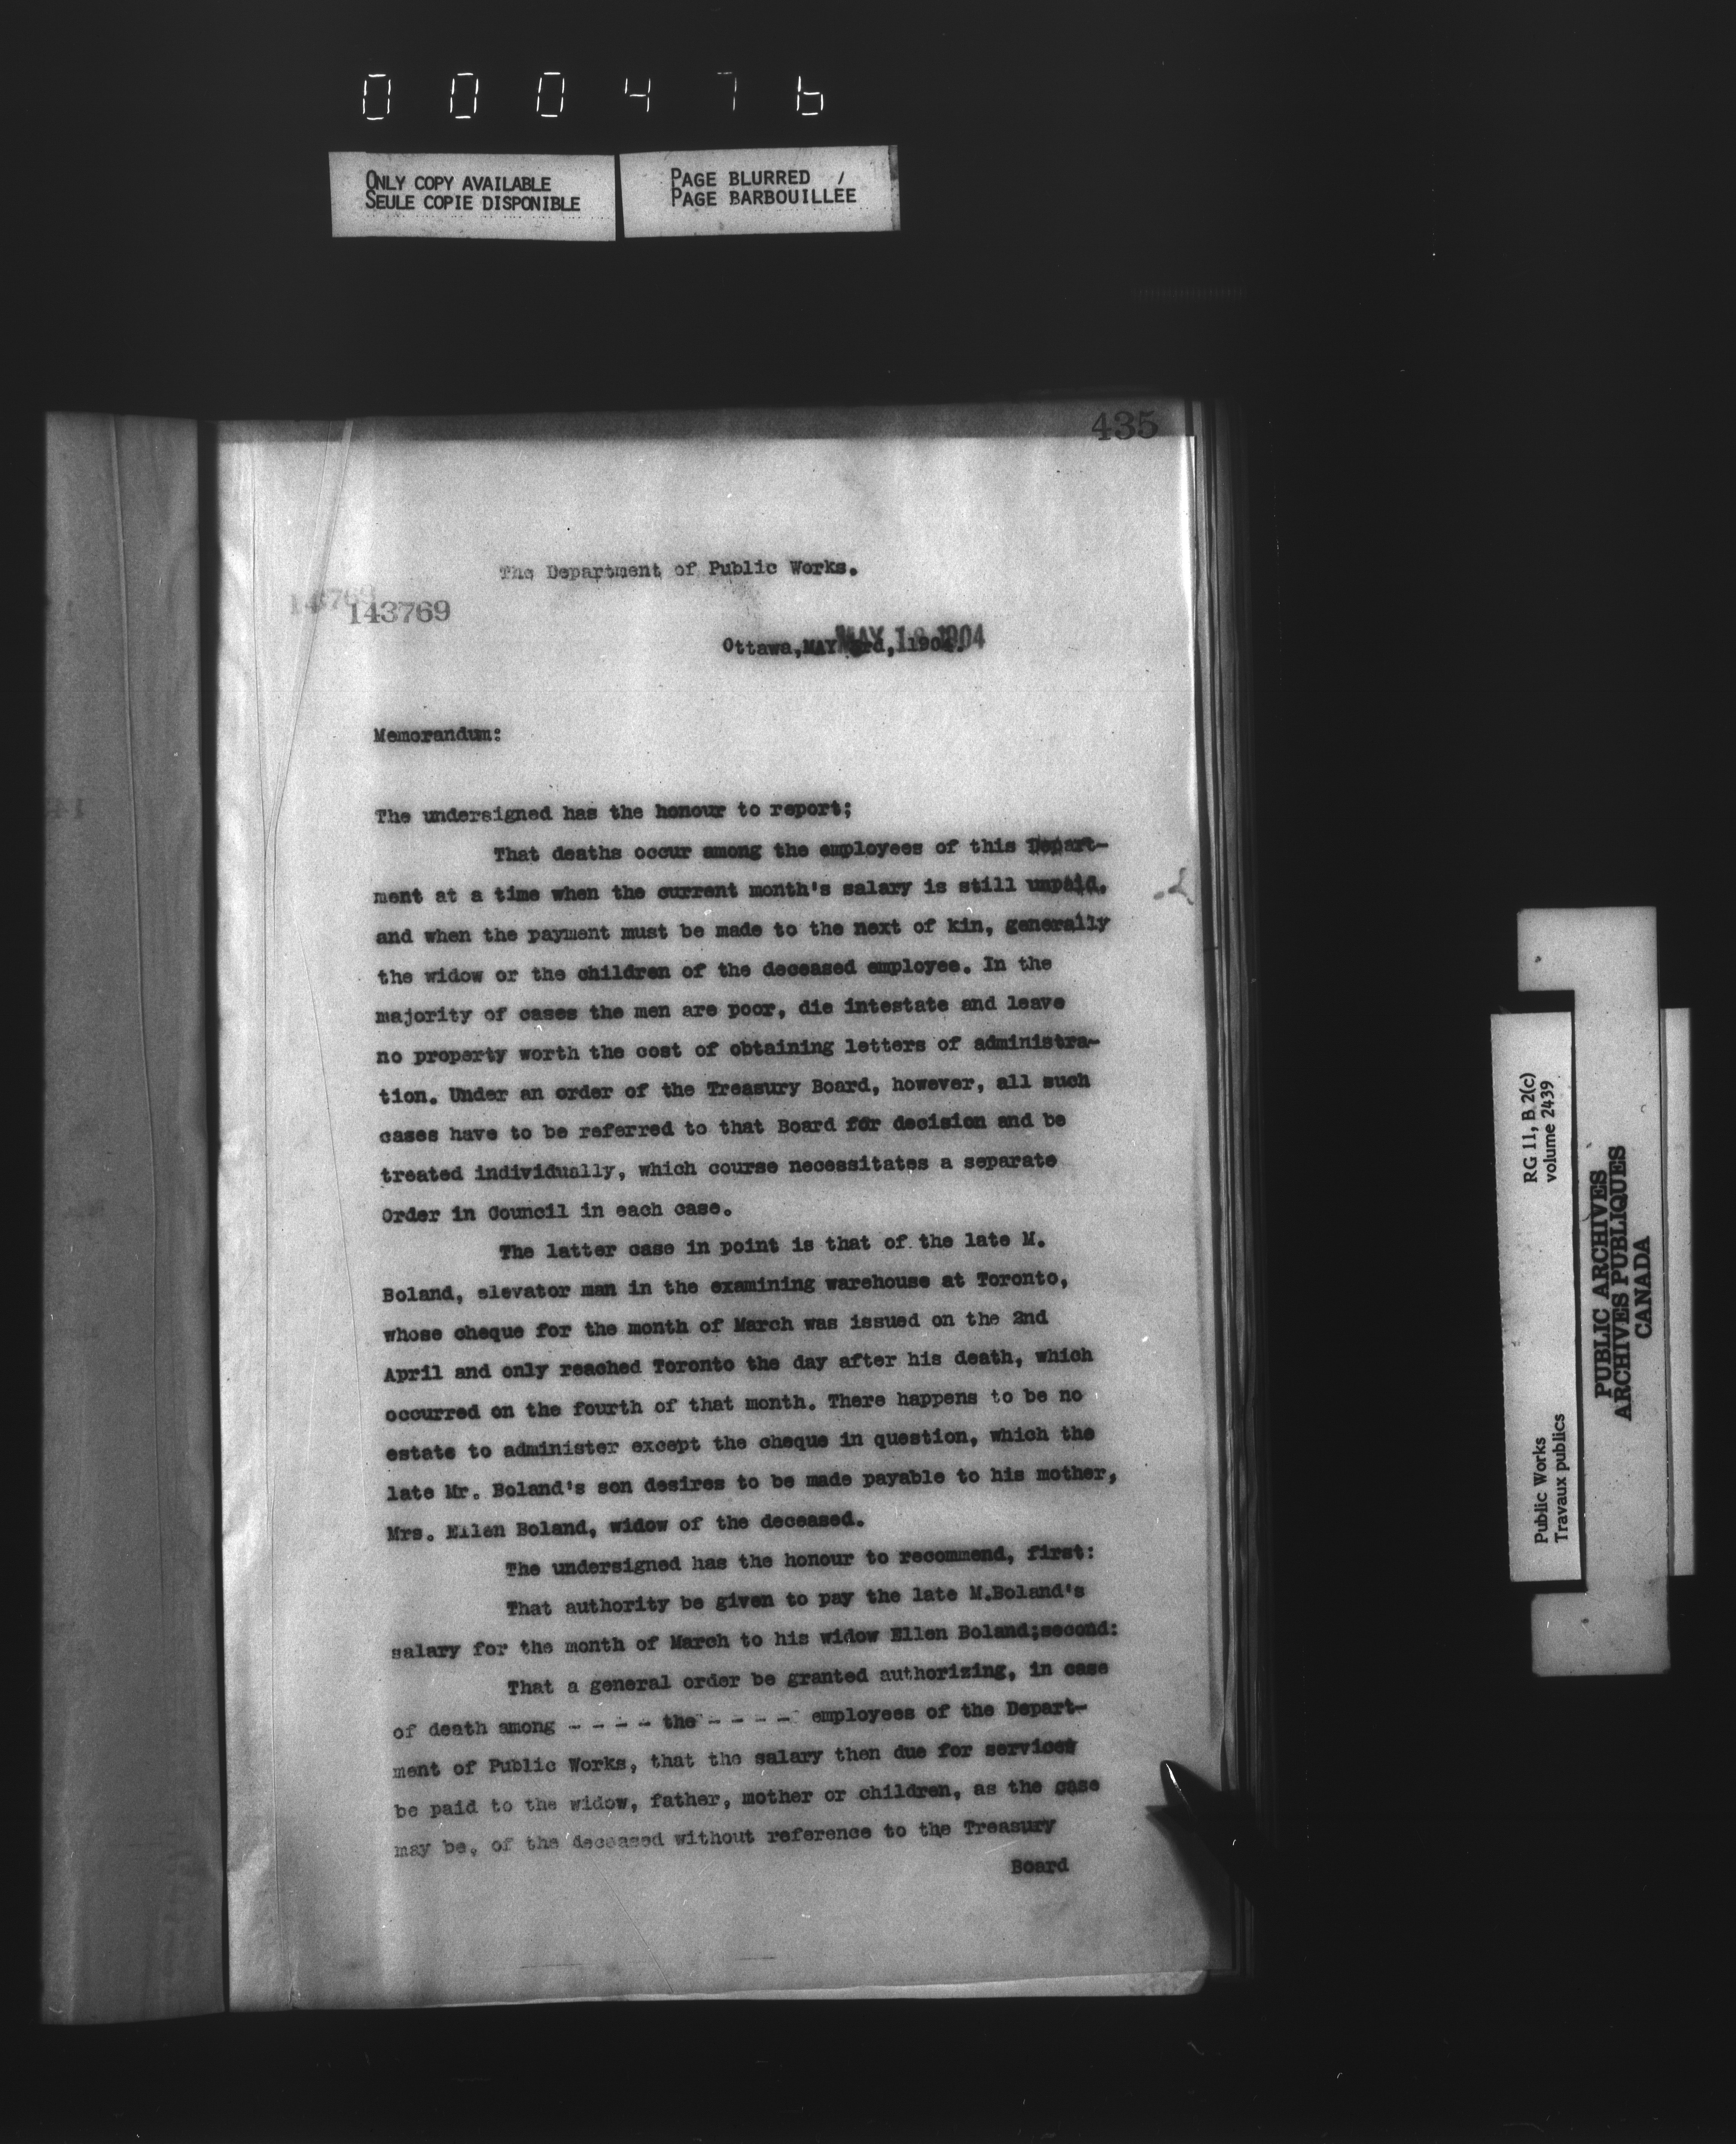 000476
ONLY COPY AVAILABLE
SEULE COPIE DISPONIBLE
PAGE BLURRED /
PAGE BARBOUILLEE
435
The Department of Public Works.
143769
143769
Ottawa, MAY 1904
Memorandum:
The undersigned has the honour to report;
That deaths occur among the employees of this Depart-
ment at a time when the current month's salary is still unpaid,
and when the payment must be made to the next of kin, generally
the widow or the children of the deceased employee. In the
majority of cases the men are poor, die intestate and leave
no property worth the cost of obtaining letters of administra-
tion. Under an order of the Treasury Board, however, all such
cases have to be referred to that Board for decision and be
treated individually, which course necessitates a separate
Order in Council in each case.
The latter case in point is that of the late M.
Boland, elevator man in the examining warehouse at Toronto,
whose cheque for the month of March was issued on the 2nd
April and only reached Toronto the day after his death, which
occurred on the fourth of that month. There happens to be no
estate to administer except the cheque in question, which the
late Mr. Boland's son desires to be made payable to his mother,
Mrs. Ellen Boland, widow of the deceased.
The undersigned has the honour to recommend, first:
That authority be given to pay the late M.Boland's
salary for the month of March to his widow Ellen Boland;second:
That a general order be granted authorizing, in case
of death among - - - - the - - - - employees of the Depart-
ment of Public Works, that the salary then due for services
be paid to the widow, father, mother or children, as the case
may be, of the deceased without reference to the Treasury
Board
RG 11, B 2(c)
volume 2439
Public Works
Travaux publics
PUBLIC ARCHIVES
ARCHIVES PUBLIQUES
CANADA